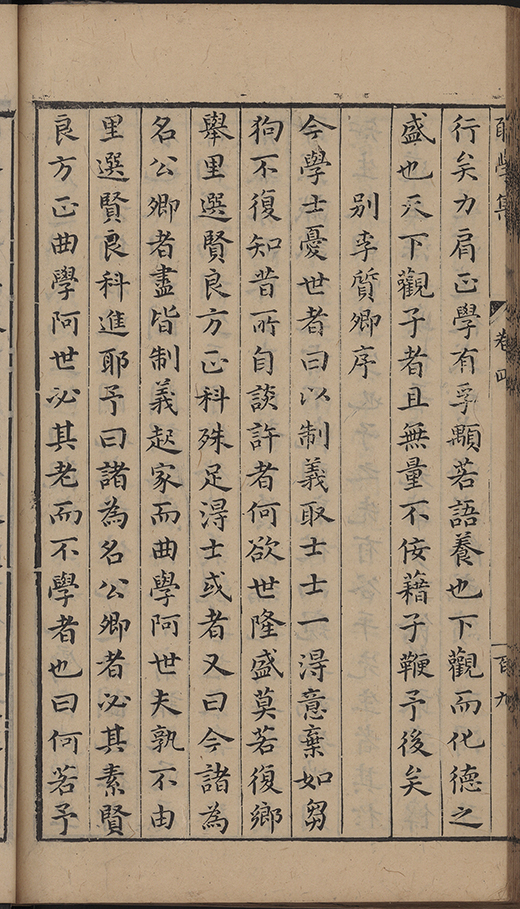 耴學集 卷四 百九
行矣力肩正學有孚顒若語養也下觀而化德之
盛也天下觀子者且無量不佞藉子鞭予後矣
別李質卿序
今學士憂世者曰以制義取士士一得意棄如芻
狗不復知昔所自談許者何欲世隆盛莫若復鄉
舉里選賢良方正科殊足得士或者又曰今諸為
名公卿者盡皆制義起家而曲學阿世夫孰不由
里選賢良科進耶予曰諸為名公卿者必其素賢
良方正曲學阿世必其老而不學者也曰何若予